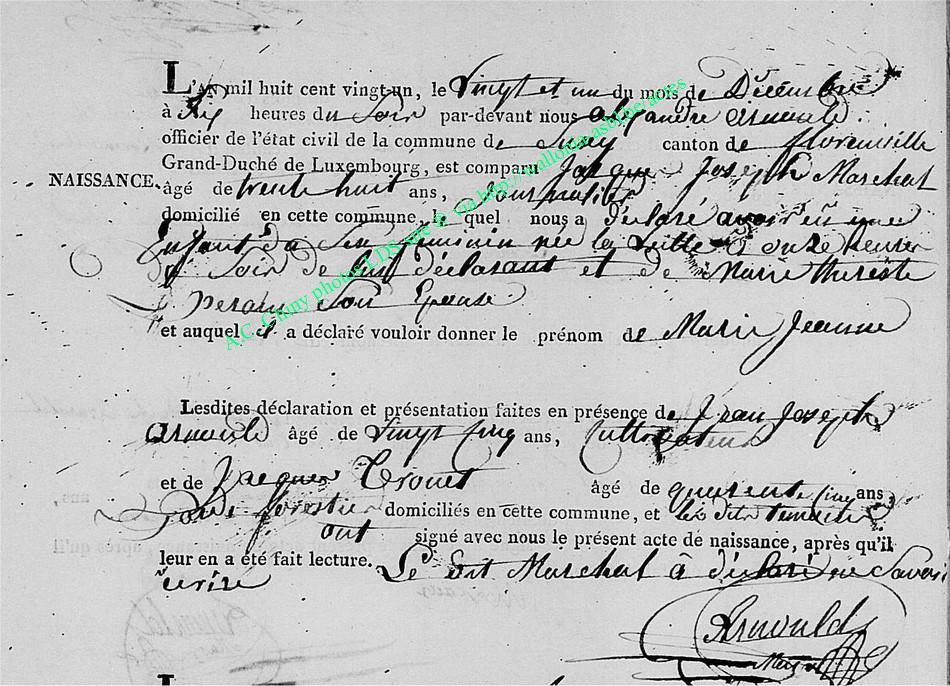 L'AN mil huit cent vingt-un, le vingt et un du mois de Décembre
à Six heures du Soir par-devant nous alexandre arnould
officier de l'état civil de la commune de canton de florenville
Grand-Duché de Luxembourg, est comparu Jacque Joseph Marchal
NAISSANCE. âgé de trente huit ans,
domicilié en cette commune, le quel nous a déclaré avoir eu une
Enfant du Sexe feminin née la veille à onze heures
du Soir de luy déclarant et de Marie therese
Son Epouse.
et auquel il a déclaré vouloir donner le prénom de Marie Jeanne
Lesdites déclaration et présentation faites en présence de Jean Joseph
arnould âgé de vingt cinq ans, Cultivateur
et de Jacques Trouet âgé de quarente cinq ans,
Garde forestier domiciliés en cette commune, et les dits temoins
ont signé avec nous le présent acte de naissance, après qu'il
leur en a été fait lecture. Le Dit Marchal à déclaré ne Savoir
écrire
Arnould
A.C. Chiny photos LDS site © via http://malloria.asbl.be/actes